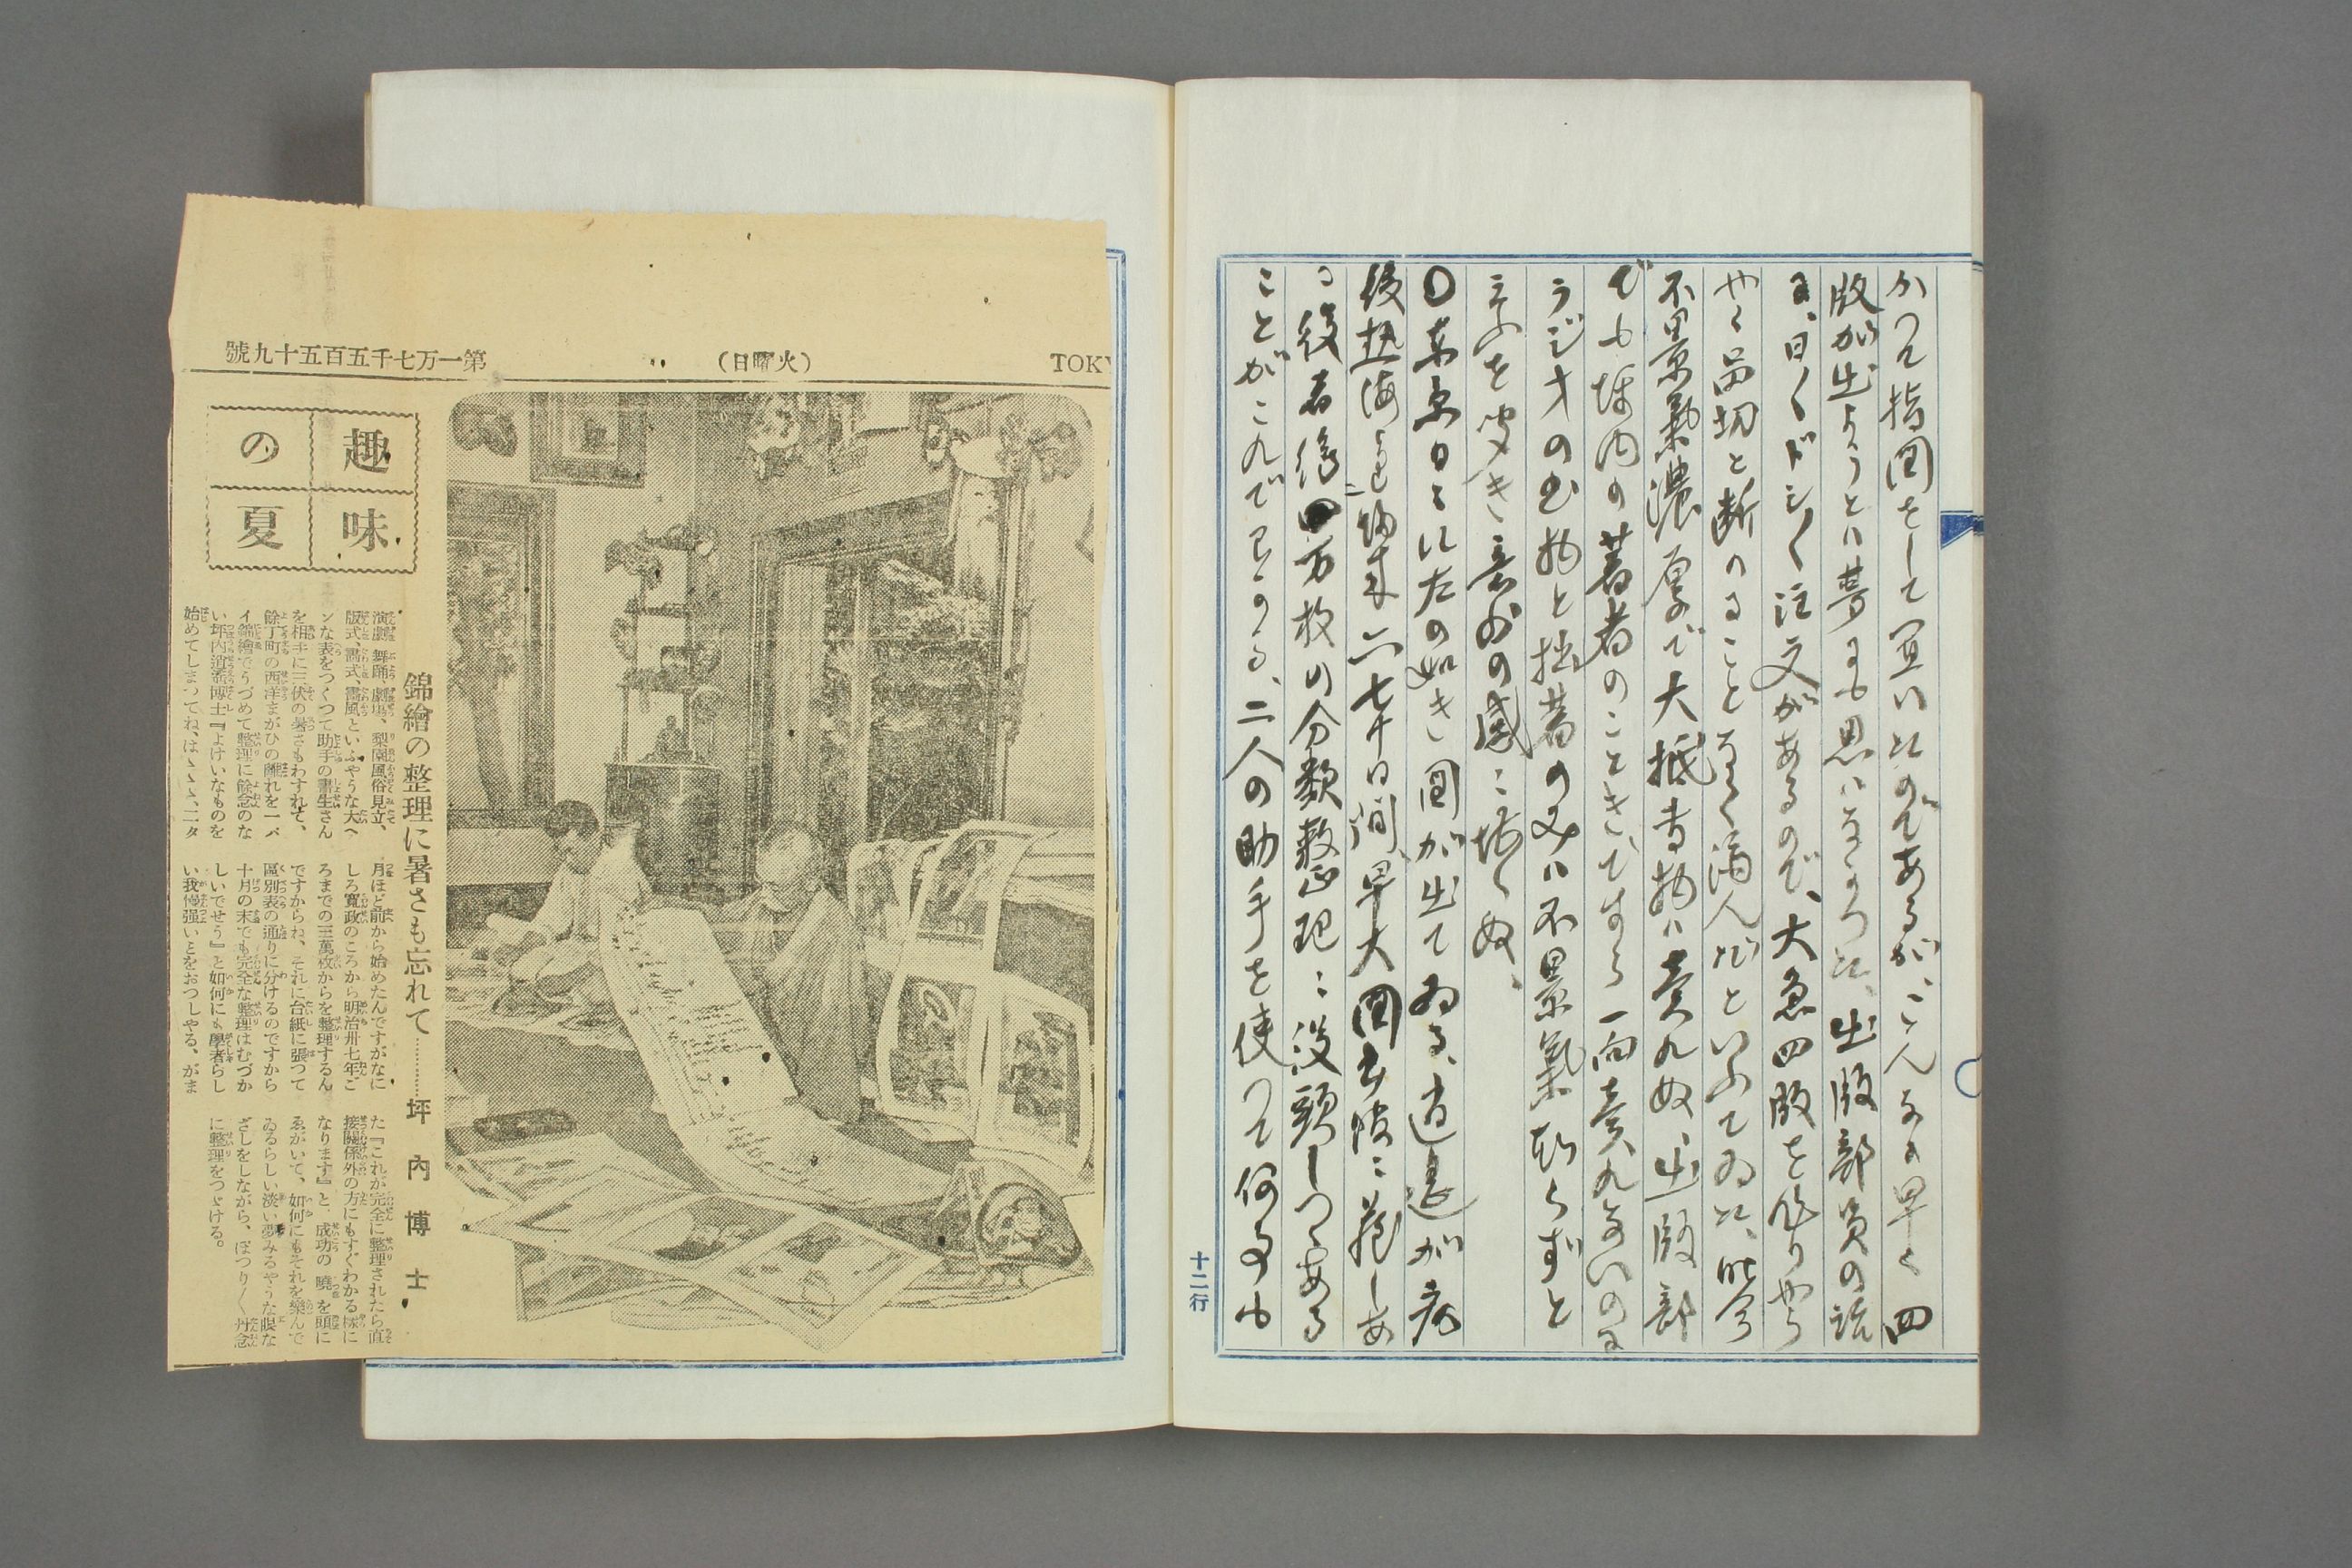 かつて指図をして置いたのであるが、こんなに早く四
版が出ようとは夢にも思はなかつた、出版部員の話
に、日くドシ〳〵注文があるので、大急四版を作りやら
品切と断ること
不景気濃厚で大抵書物は売れぬ、出版部
でも坪内の著者のことき、ですら一向売れないのに
ラジオの出物と拙著の又は不景気知らずと
言ふを聞き意外の感に堪へぬ、
〇東京日日に左の如き図が出てゐる、逍遙が病
後熱海より帰来六七十日間、早大図書館に籠しあ
る役者絵四万枚の分類整理に没頭しつゝある
ことがこれで見ゆる、二人の助手を使つて何事も
十二行
第一万七千五百五十九號
(火曜日)
TOKY
趣味
の夏
錦繪の整理に暑さも忘れて…………坪內博士
演劇、舞踊、劇場、梨園風俗見立、
版式、畫式、畫風といふやうな大へ
ンな表をつくつて助手の書生さん
を相手に三伏の暑さもわすれて、
餘丁町の西洋まがひの離れを一パ
イ錦繪でうづめて整理に餘念のな
い坪內逍遙博士『よけいなものを
始めてしまつてね、はゝゝゝ、二タ
月ほど前から始めたんですがなに
しろ寛政のころから明治卅七年ご
ろまでの三萬枚からを整理するん
ですからね、それに台紙に張つて
區別表の通りに分けるのですから
十月の末でも完全な整理はむづか
しいでせう』と如何にも學者らし
い我慢强いとをおつしやる、がま
た『これが完全に整理されたら直
接關係外の方にもすぐわかる樣に
なります』と、成功の曉を頭に
ゑがいて、如何にもそれを樂んで
ゐるらしい淡い夢みるやうな眼な
ざしをしながら、ぽつり〳〵丹念
に整理をつゞける。